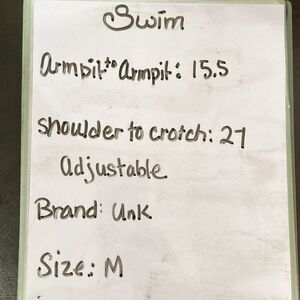 Swim
Armpit to Armpit: 15.5
Shoulder to crotch: 27
Adjustable
Brand: Unk
Size: M